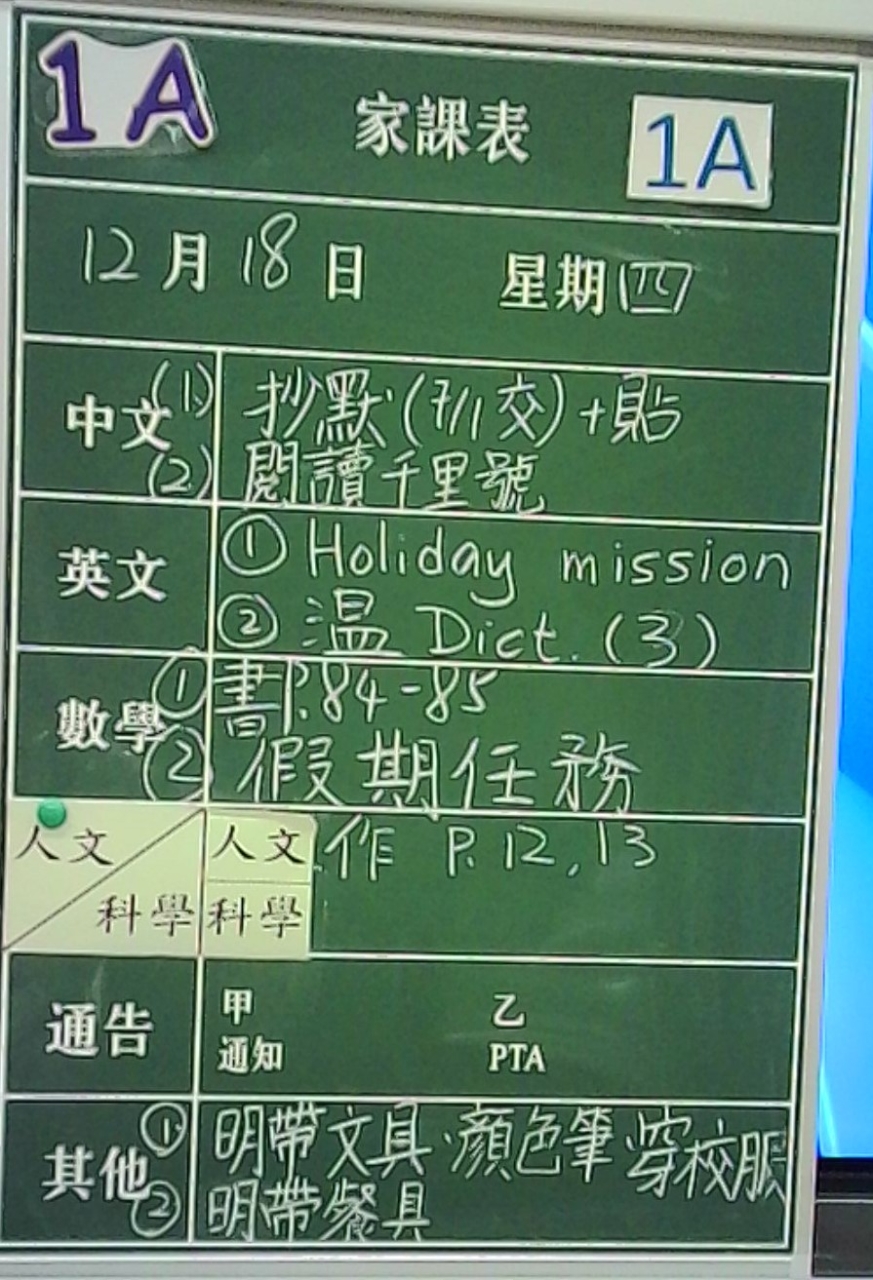 1A
家課表
1A
12月18日 星期四
中文 (1) 抄默(7/1交)+貼
(2) 閱讀千里號
英文 ① Holiday mission
② 溫 Dict. (3)
數學 ① 書P.84-85
② 假期任務
人文 人文 作 P.12,13
科學 科學
通告 甲 乙
通知 PTA
其他 ① 明帶文具.顏色筆.穿校服
② 明帶餐具